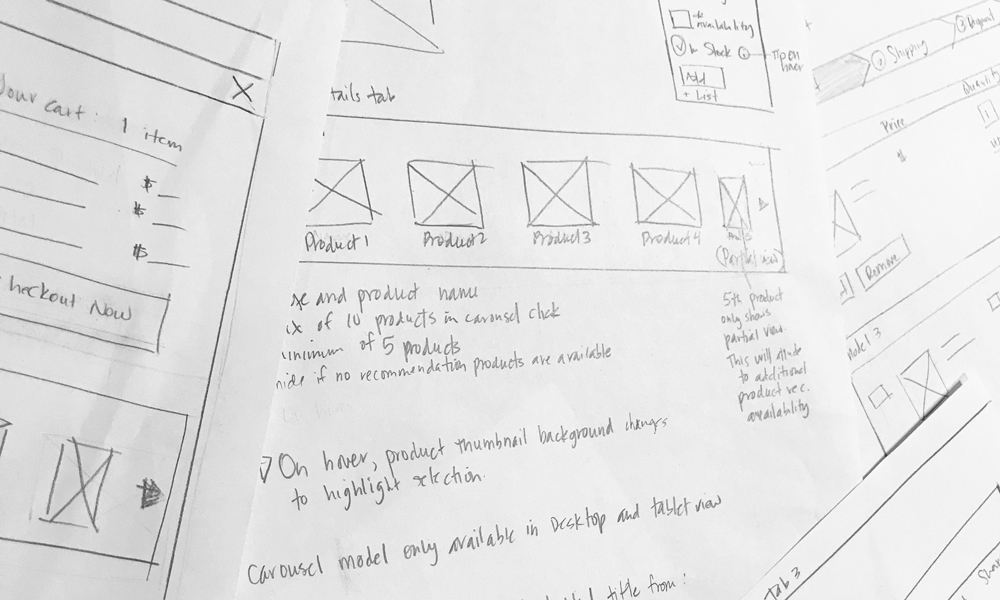 Your cart: 1 item
$
$
$
heckout Now
tails tab
availability
In Stock
Tip on
hover
Add
+ List
Product 1
Product 2
Product 3
Product 4
(Partial view)
and product name
of 10 products in carousel click
minimum of 5 products
hide if no recommendation products are available
5th product
only shows
partial view.
This will allude
to additional
product rec.
availability
On hover, product thumbnail background changes
to highlight selection.
Carousel model only available in Desktop and tablet view
title from:
Shipping
3
Quantity
Price
$
1
Remove
Model 3
Tab 3